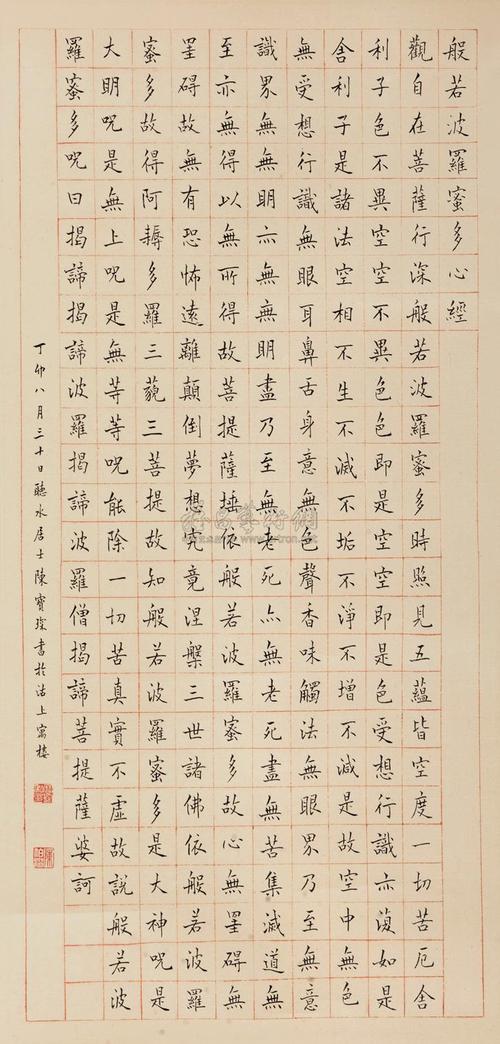 般若波羅蜜多心經
觀自在菩薩行深般若波羅蜜多時照見五蘊皆空度一切苦厄舍
利子色不異空空不異色色即是空空即是色受想行識亦復如是
舍利子是諸法空相不生不滅不垢不淨不增不減是故空中無色
無受想行識無眼耳鼻舌身意無色聲香味觸法無眼界乃至無意
識界無無明亦無無明盡乃至無老死亦無老死盡無苦集滅道無
至亦無得以無所得故菩提薩埵依般若波羅蜜多故心無罣碍無
罣碍故無有恐怖遠離顛倒夢想究竟涅槃三世諸佛依般若波羅
蜜多故得阿耨多羅三藐三菩提故知般若波羅蜜多是大神呪是
大明呪是無上呪是無等等呪能除一切苦真實不虛故說般若波
羅蜜多呪曰揭諦揭諦波羅揭諦波羅僧揭諦菩提薩婆訶
丁卯八月三十日聽水居士陳寶琛書於沽上寓樓